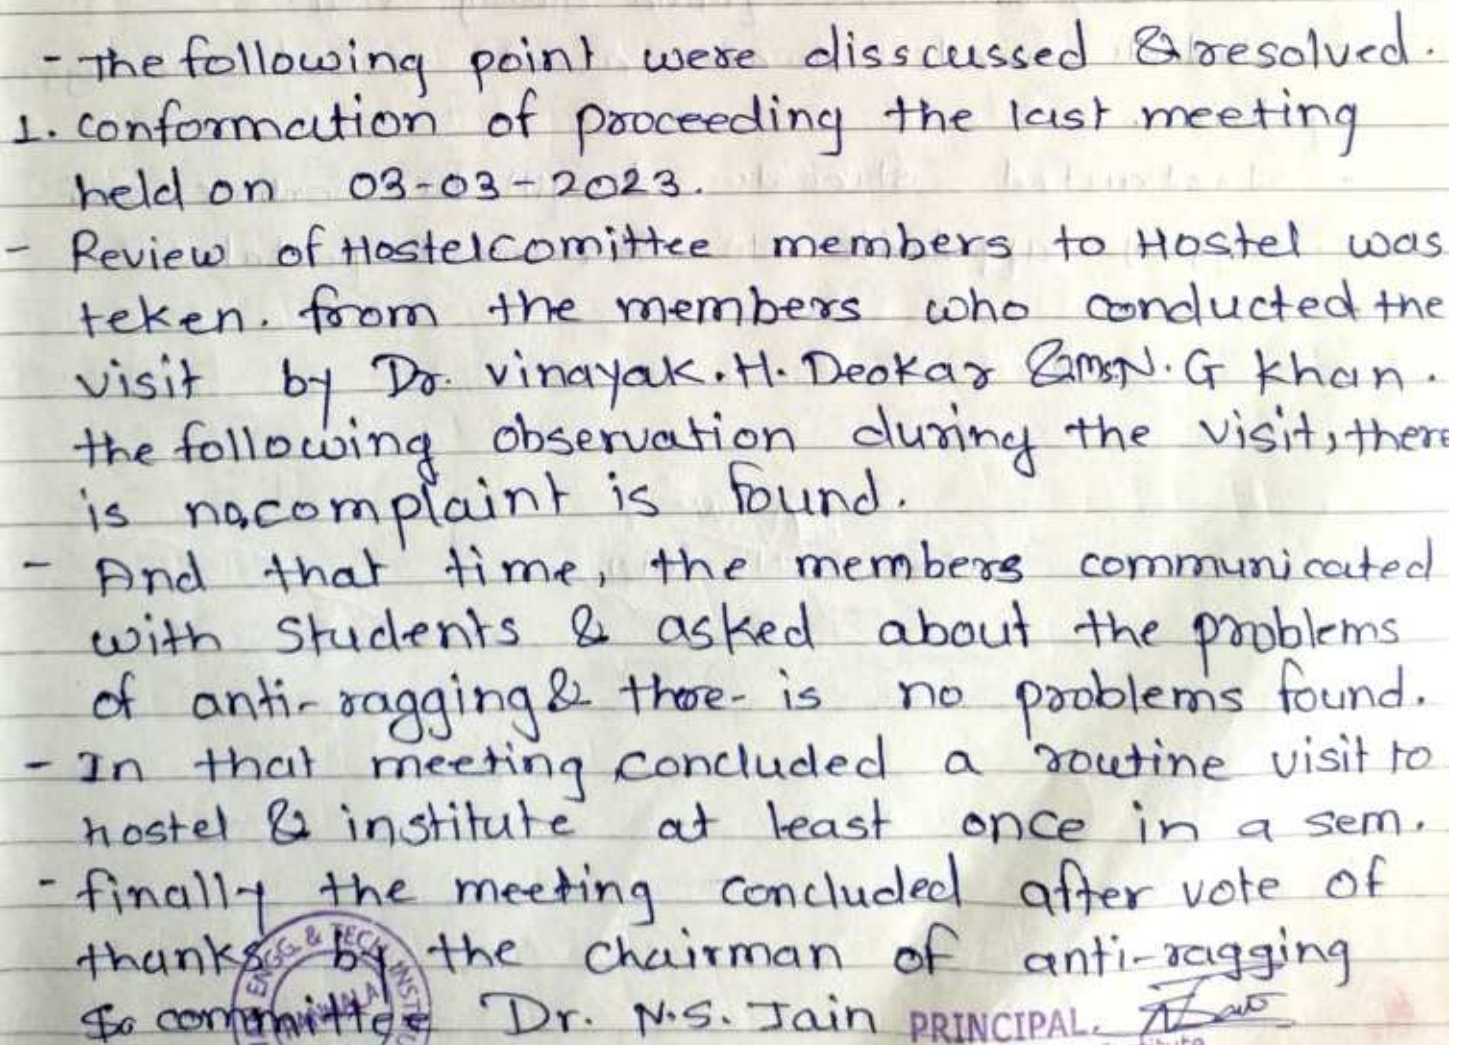 - The following point were disscussed & resolved.
1. conformation of proceeding the last meeting
held on 03-03-2023.
- Review of Hostel comittee members to Hostel was
teken. from the members who conducted the
visit by Dr. Vinayak.H. Deokar & Ms N. G Khan.
the following observation during the visit, there
is no complaint is found.
- And that time, the members communicated
with students & asked about the problems
of anti-ragging & there- is no problems found.
- In that meeting concluded a routine visit to
hostel & institute at least once in a sem.
- finally the meeting concluded after vote of
thanks by the chairman of anti-ragging
committee Dr. N.S. Jain PRINCIPAL.
ENGG & TECH INST